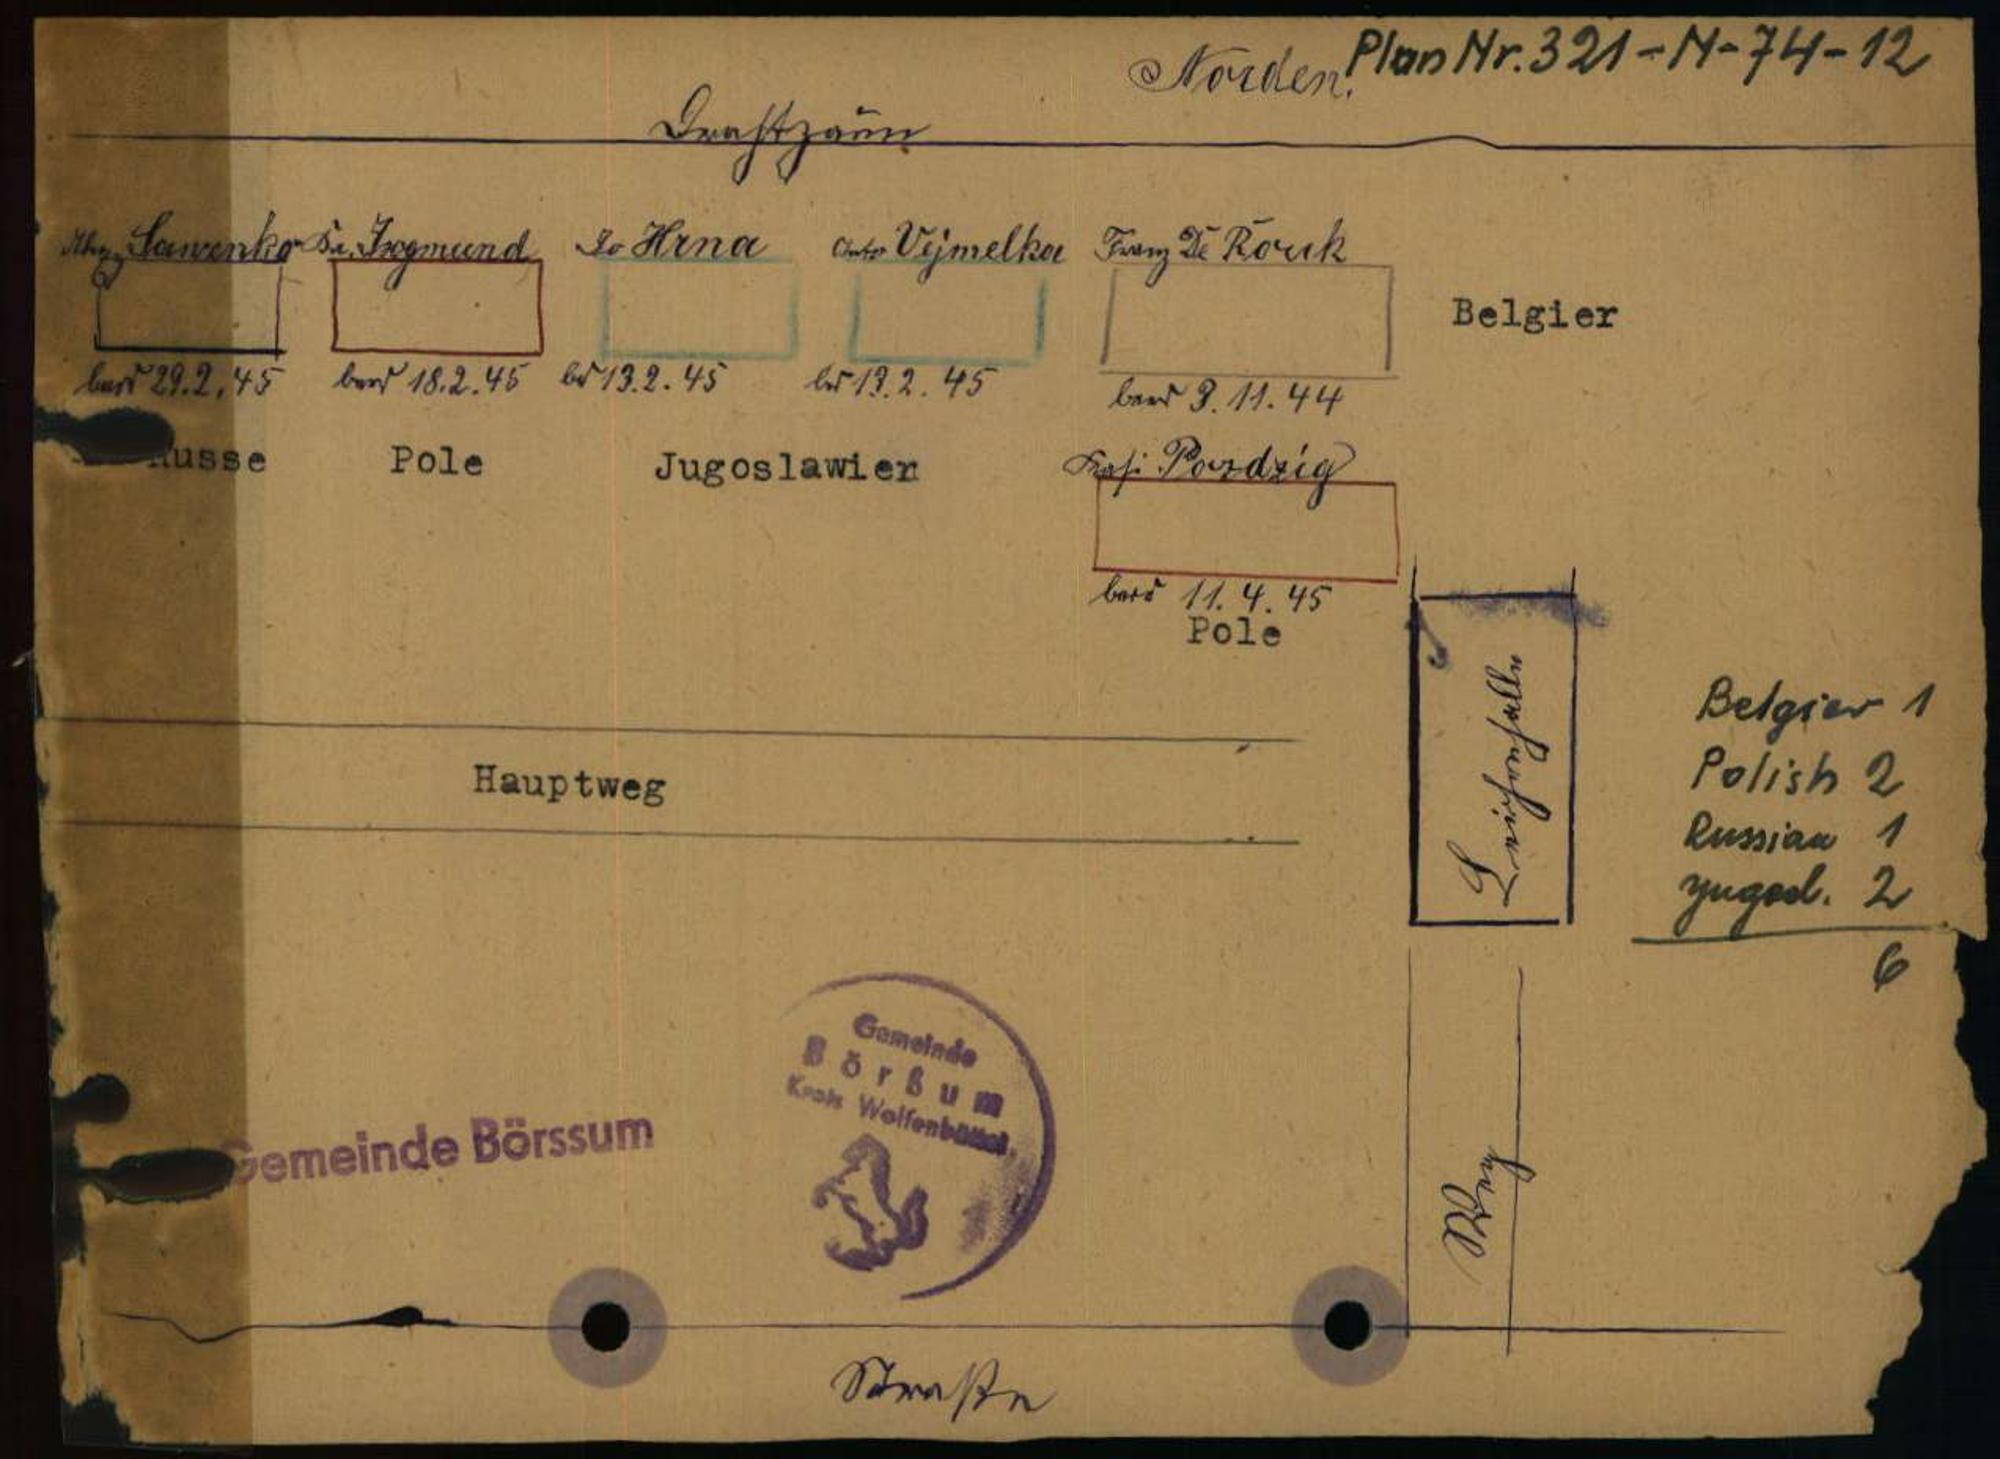 Norden. Plan Nr. 321-N-74-12
Drahtzaun
Sawenko Irogmund Hrna Vijmelka Franz De Rouk
Belgier
29.2.45 18.2.45 13.2.45 13.2.45 3.11.44
Russe Pole Jugoslawier Kasi Pozdzig
11.4.45
Pole
Hauptweg
Leichenhalle
Belgier 1
Polish 2
Russian 1
Yugosl. 2
6
Gemeinde
Börßum
Kreis Wolfenbüttel
Gemeinde Börssum
Weg
Straße